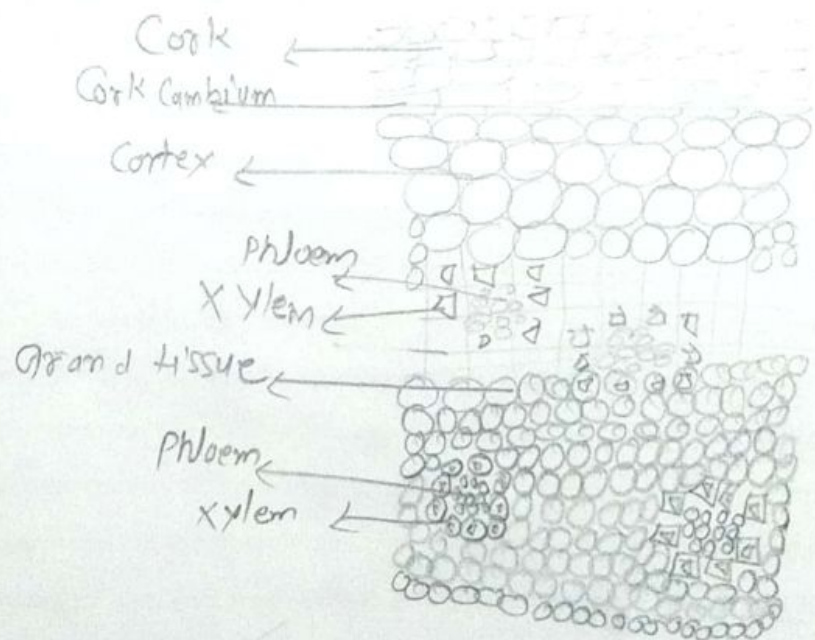 Cork
Cork Cambium
Cortex
Phloem
Xylem
Grand tissue
Phloem
Xylem